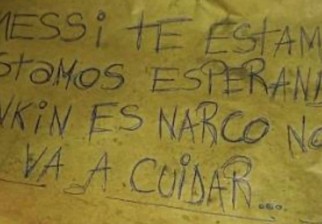 MESSi TE ESTAM
StAMOS ESPERAN
NKiN ES NARCO NO
VA A CUiDAR...